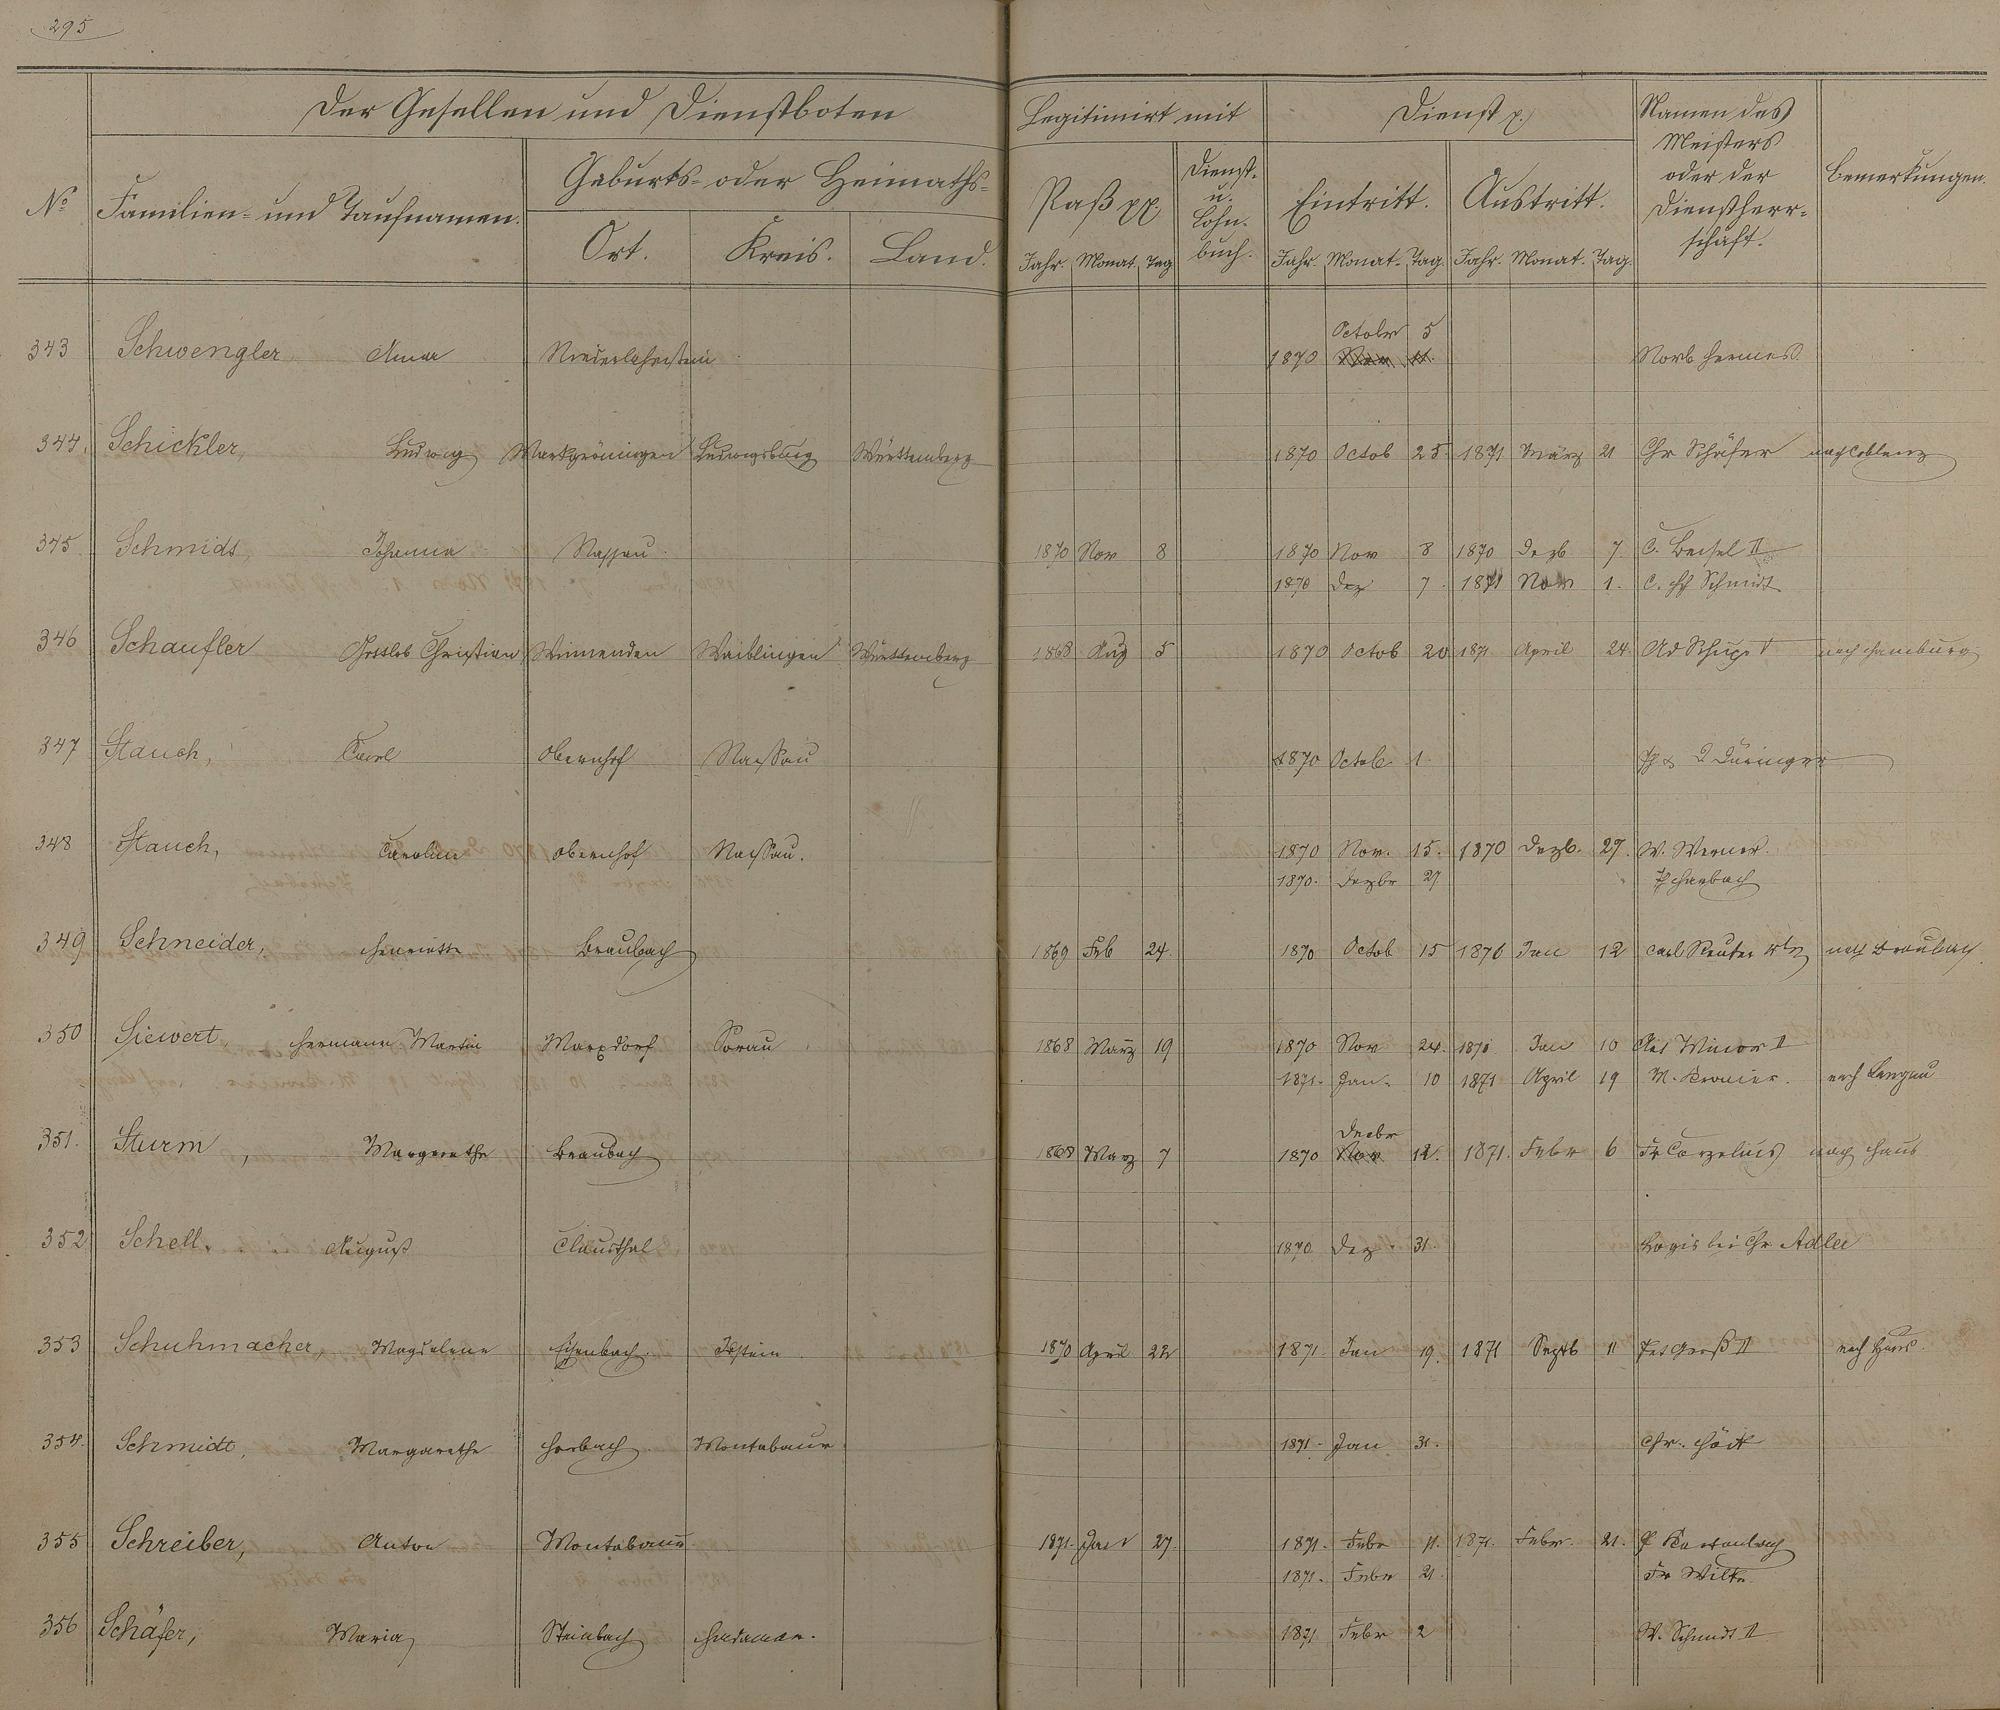 295
Der Gesellen und Dienstboten
Legitimirt mit
Dienst p.
Namen des
Meisters
oder der
Dienstherr-
schaft.
Bemerkungen.
No
Familien- und Taufnamen.
Geburts- oder Heimaths-
Ort. Kreis. Land.
Paß pp.
Dienst-
u.
Lohn-
buch.
Eintritt. Austritt.
Jahr. Monat. Tag Jahr. Monat. Tag. Jahr. Monat. Tag.
Octobr 5
343 Schwengler Anna Niederlahnstein 1870 Norb Hermes
344. Schickler, Ludwig Markgröningen Ludwigsburg Württemberg 1870 Octob 25. 1871 März 21 Chr Schäfer nach Coblenz
345 Schmidt, Johanna Nassau. 1870 Nov 8 1870 Nov 8 1870 Dezb 7. C. Beisel II
1870 Dez 7. 1871 Nov 1. C. Schmidt
346 Schaufler Gottlob Christian Winnenden Waiblingen Württemberg 1868 Aug 5 1870 Octob 20 1871 April 24. Ad nach Hamburg
347 Stauch, Carl Obernhof Nassau 1870 Octob. 1. Düringer
348 Stauch, Carolin Obernhof Nassau. 1870 Nov. 15. 1870 Dezb. 27. W. Werner.
1870. Dezbr 27
349 Schneider, Henriette Braubach 1869 Feb 24. 1870 Octob 15 1870 Jan 12 Carl Reuter nach Braubach
350 Siewert, Hermann Martin Marxdorf Sorau 1868 März 19 1870 Nov 24. 1871 Jan 10 Winor II
1871. Jan. 10 1871 April 19 M. nach
Decbr
351. Sturm, Margarethe Braubach 1868 März 7 1870 Nov 12. 1871. Febr 6 Fr nach Haus
352. Schell, August Clausthal 1870. Dez. 31. Logis bei Chr Adler
353 Schuhmacher, Magdalene Eisenbach. Idstein. 1870 April 22 1871. Jan 19. 1871 Septb 11 Pet Groß II nach Haus.
354. Schmidt, Margarethe Horbach. Montabaur 1871. Jan 31. Chr.
355 Schreiber, Anton Montabaur 1871. Jan 27. 1871. Febr 11. 1871. Febr. 21.
1871. Febr 21. Fr
356 Schäfer, Maria Steinbach Hadamar. 1871 Febr 2 W. Schmidt II